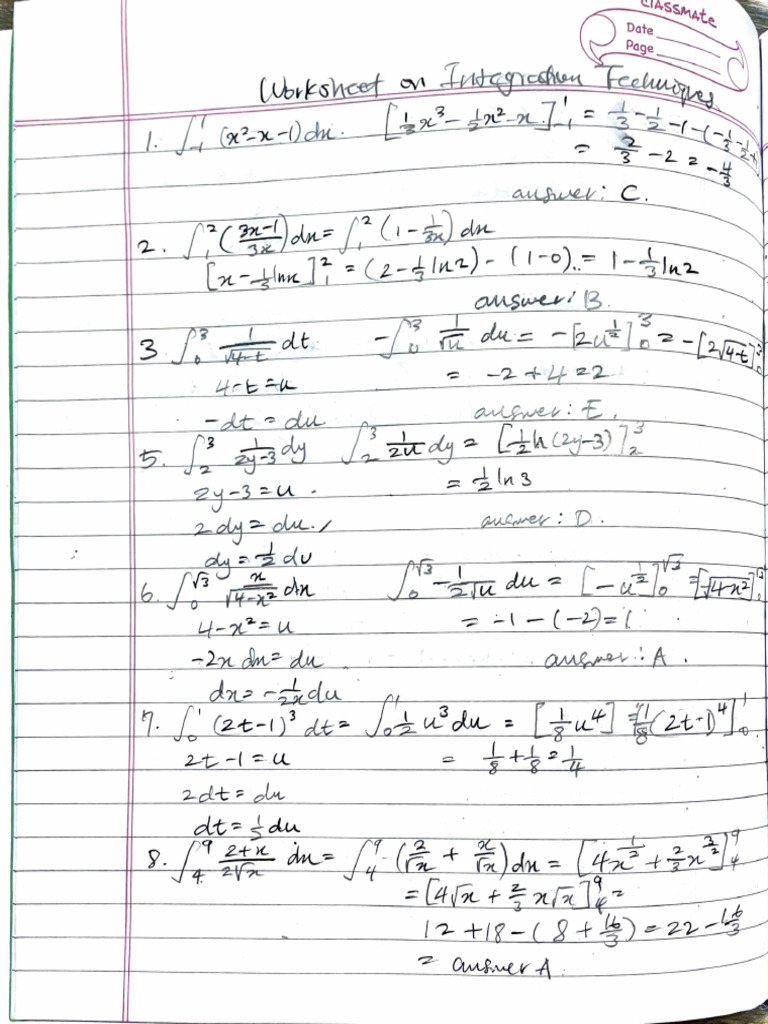 classmate
Date
Page
Worksheet on Integration Techniques
1. ∫₋₁¹ (x²-x-1)dx. [⅓x³ - ½x² - x]₋₁¹ = ⅓ - ½ - 1 - (-⅓ - ½ + 1)
= ⅔ - 2 = -4/3
answer: C.
2. ∫₁² ((3x-1)/3x) dx = ∫₁² (1 - 1/3x) dx
[x - ⅓lnx]₁² = (2 - ⅓ln2) - (1-0) = 1 - ⅓ln2
answer: B.
3 ∫₀³ 1/√(4-t) dt -∫₀³ 1/√u du = -[2u^½]₀³ = -[2√(4-t)]₀³
4-t = u = -2+4 = 2
-dt = du answer: E.
5. ∫₂³ 1/(2y-3) dy ∫₂³ 1/2u dy = [½ln(2y-3)]₂³
2y-3 = u. = ½ln3
2dy = du. answer: D.
dy = ½ du
6. ∫₀^√3 x/√(4-x²) dx ∫₀^√3 -1/(2√u) du = [-u^½]₀^√3 = [-√(4-x²)]₀^√3
4-x² = u = -1-(-2) = 1
-2x dx = du answer: A.
dx = -1/2x du
7. ∫₀¹ (2t-1)³ dt = ∫₀¹ ½u³du = [⅛u⁴] = [⅛(2t-1)⁴]₀¹
2t-1 = u = ⅛+⅛ = ¼
2dt = du
dt = ½du
8. ∫₄⁹ (2+x)/(2√x) dx = ∫₄⁹ (2/√x + x/√x) dx = [4x^½ + ⅔x^(3/2)]₄⁹
= [4√x + ⅔x√x]₄⁹ =
12+18-(8+16/3) = 22-16/3
= answer A.